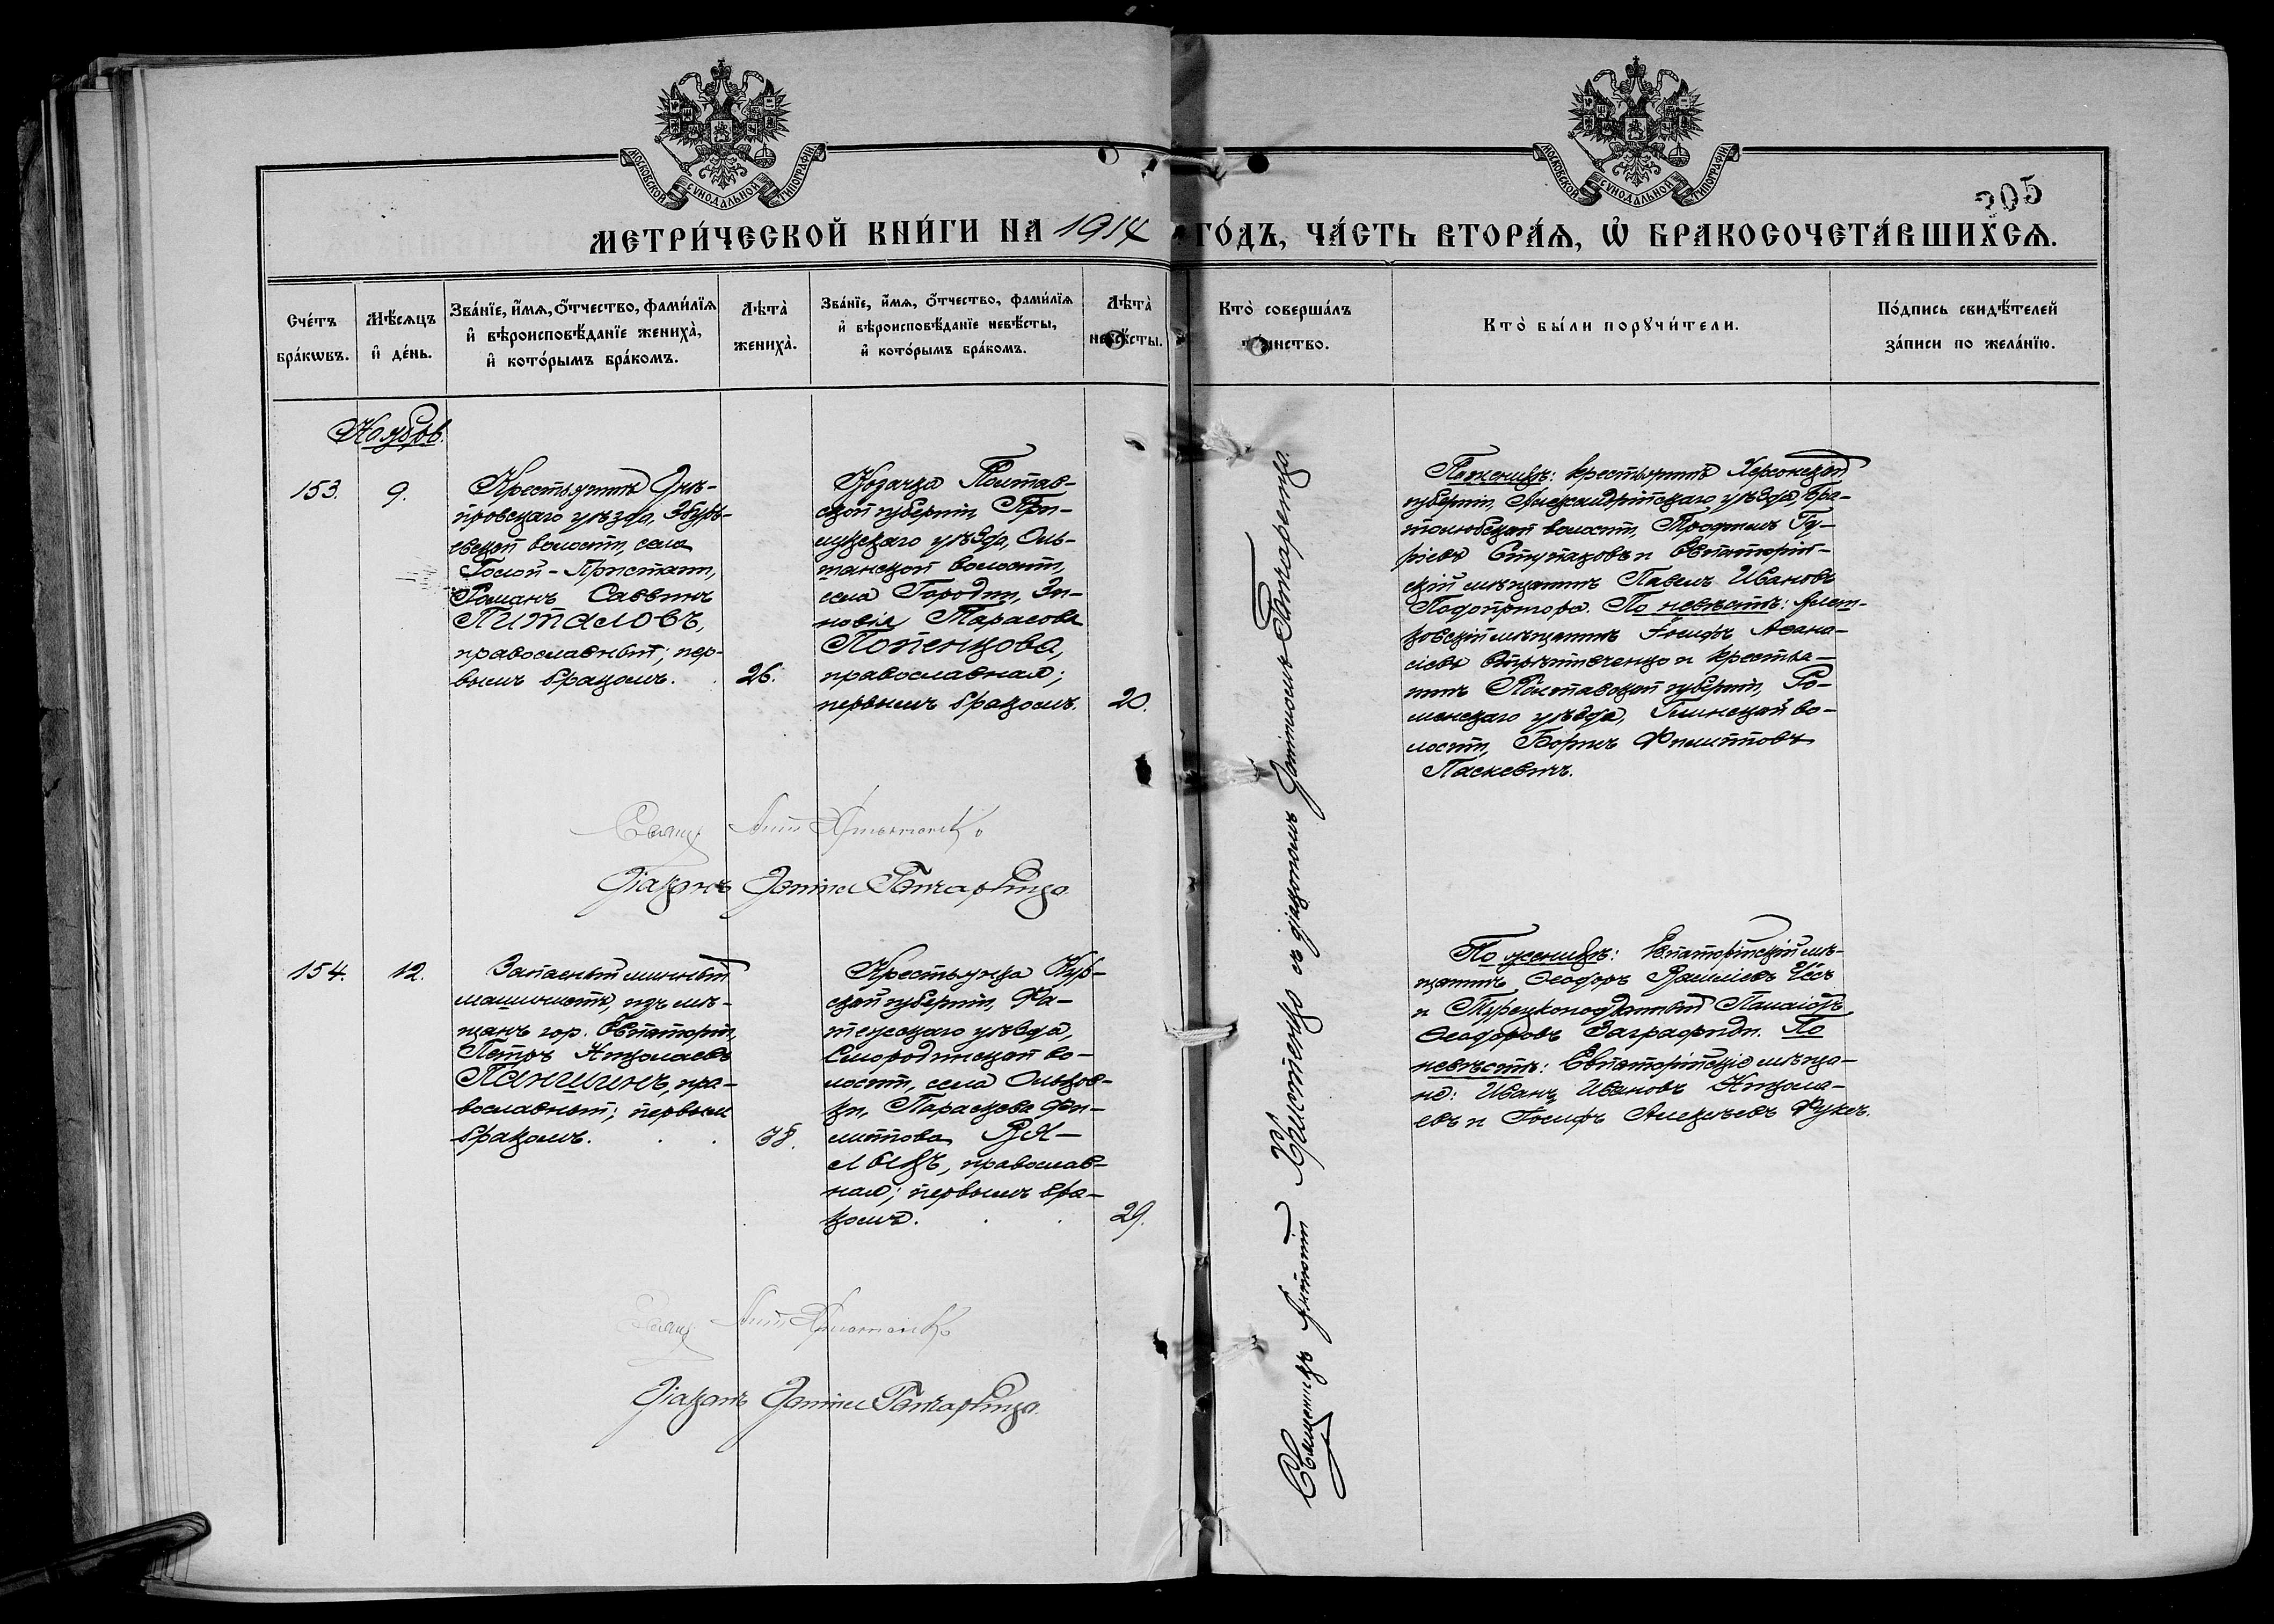 МОСКОВСКОЙ СѴНОДАЛЬНОЙ ТИПОГРАФІИ
МОСКОВСКОЙ СѴНОДАЛЬНОЙ ТИПОГРАФІИ
305
МЕТРИ́ЧЕСКОЙ КНИ́ГИ НА 1914 ГО́ДЪ, ЧА́СТЬ ВТОРА́Ѧ, Ѡ҆ БРАКОСОЧЕТА́ВШИХСѦ.
Сче́тъ
бра́кѡвъ.
Мѣ́сѧцъ
и҆ де́нь.
Зва́нїе, и҆́мѧ, ѻ҆́тчество, фами́лїѧ
и҆ вѣроисповѣ́данїе жениха̀,
и҆ кото́рымъ бра́комъ.
Лѣта̀
жениха̀.
Зва́нїе, и҆́мѧ, ѻ҆́тчество, фами́лїѧ
и҆ вѣроисповѣ́данїе невѣ́сты,
и҆ кото́рымъ бра́комъ.
Лѣта̀
невѣ́сты.
Кто̀ соверша́лъ
та́инство.
Кто̀ бы́ли порꙋчи́тели.
По́дпись свидѣ́телей
за́писи по жела́нїю.
Ноябрь.
153.
9.
Крестьянинъ Днѣ-
провскаго уѣзда, Збурь-
евской волости, села
Голой-Пристани,
Романъ Саввинъ
Питаловъ,
православный; пер-
вымъ бракомъ.
26.
Козачка Полтав-
ской губерніи, При-
лукскаго уѣзда, Оль-
шанской волости,
села Городни, Зи-
новія Тарасова
Попенкова,
православная;
первымъ бракомъ.
20.
Священникъ Антоній Хмолпенко съ діакономъ Даніиломъ Гончаренко.
По женихѣ: крестьянинъ Херсонской
губерніи, Александрійскаго уѣзда, Бра-
толюбской волости, Трофимъ Гу-
ріевъ Ступаковъ и Евпаторій-
скій мѣщанинъ Павелъ Ивановъ
Подопригора. По невѣстѣ: Алеш-
ковскій мѣщанинъ Іосифъ Аѳана-
сіевъ и крестья-
нинъ Полтавской губерніи, Ро-
менскаго уѣзда, Глинской во-
лости, Борисъ Филипповъ
Паскевичъ.
Свящ. Ант.
Діаконъ Даніилъ Гончаренко.
154.
12.
Запасный минный
машинистъ, изъ мѣ-
щанъ гор. Евпаторіи,
Петръ Николаевъ
Паншинъ, пра-
вославный; первымъ
бракомъ.
38.
Крестьянка Кур-
ской губерніи, Фа-
тежскаго уѣзда,
Смородинской во-
лости, села Ольхов-
ки, Параскева Фи-
липпова
православ-
ная; первымъ бра-
комъ.
29.
По женихѣ: Евпаторійскій мѣ-
щанинъ Ѳеодоръ Василіевъ
и Турецкоподданный Панаіотъ
Ѳеодоровъ Заграфиди. По
невѣстѣ: Евпаторійскіе мѣща-
не: Иванъ Ивановъ Никола-
евъ и Іосифъ Алексѣевъ Фуксъ.
Свящ. Ант.
Діаконъ Даніилъ Гончаренко.